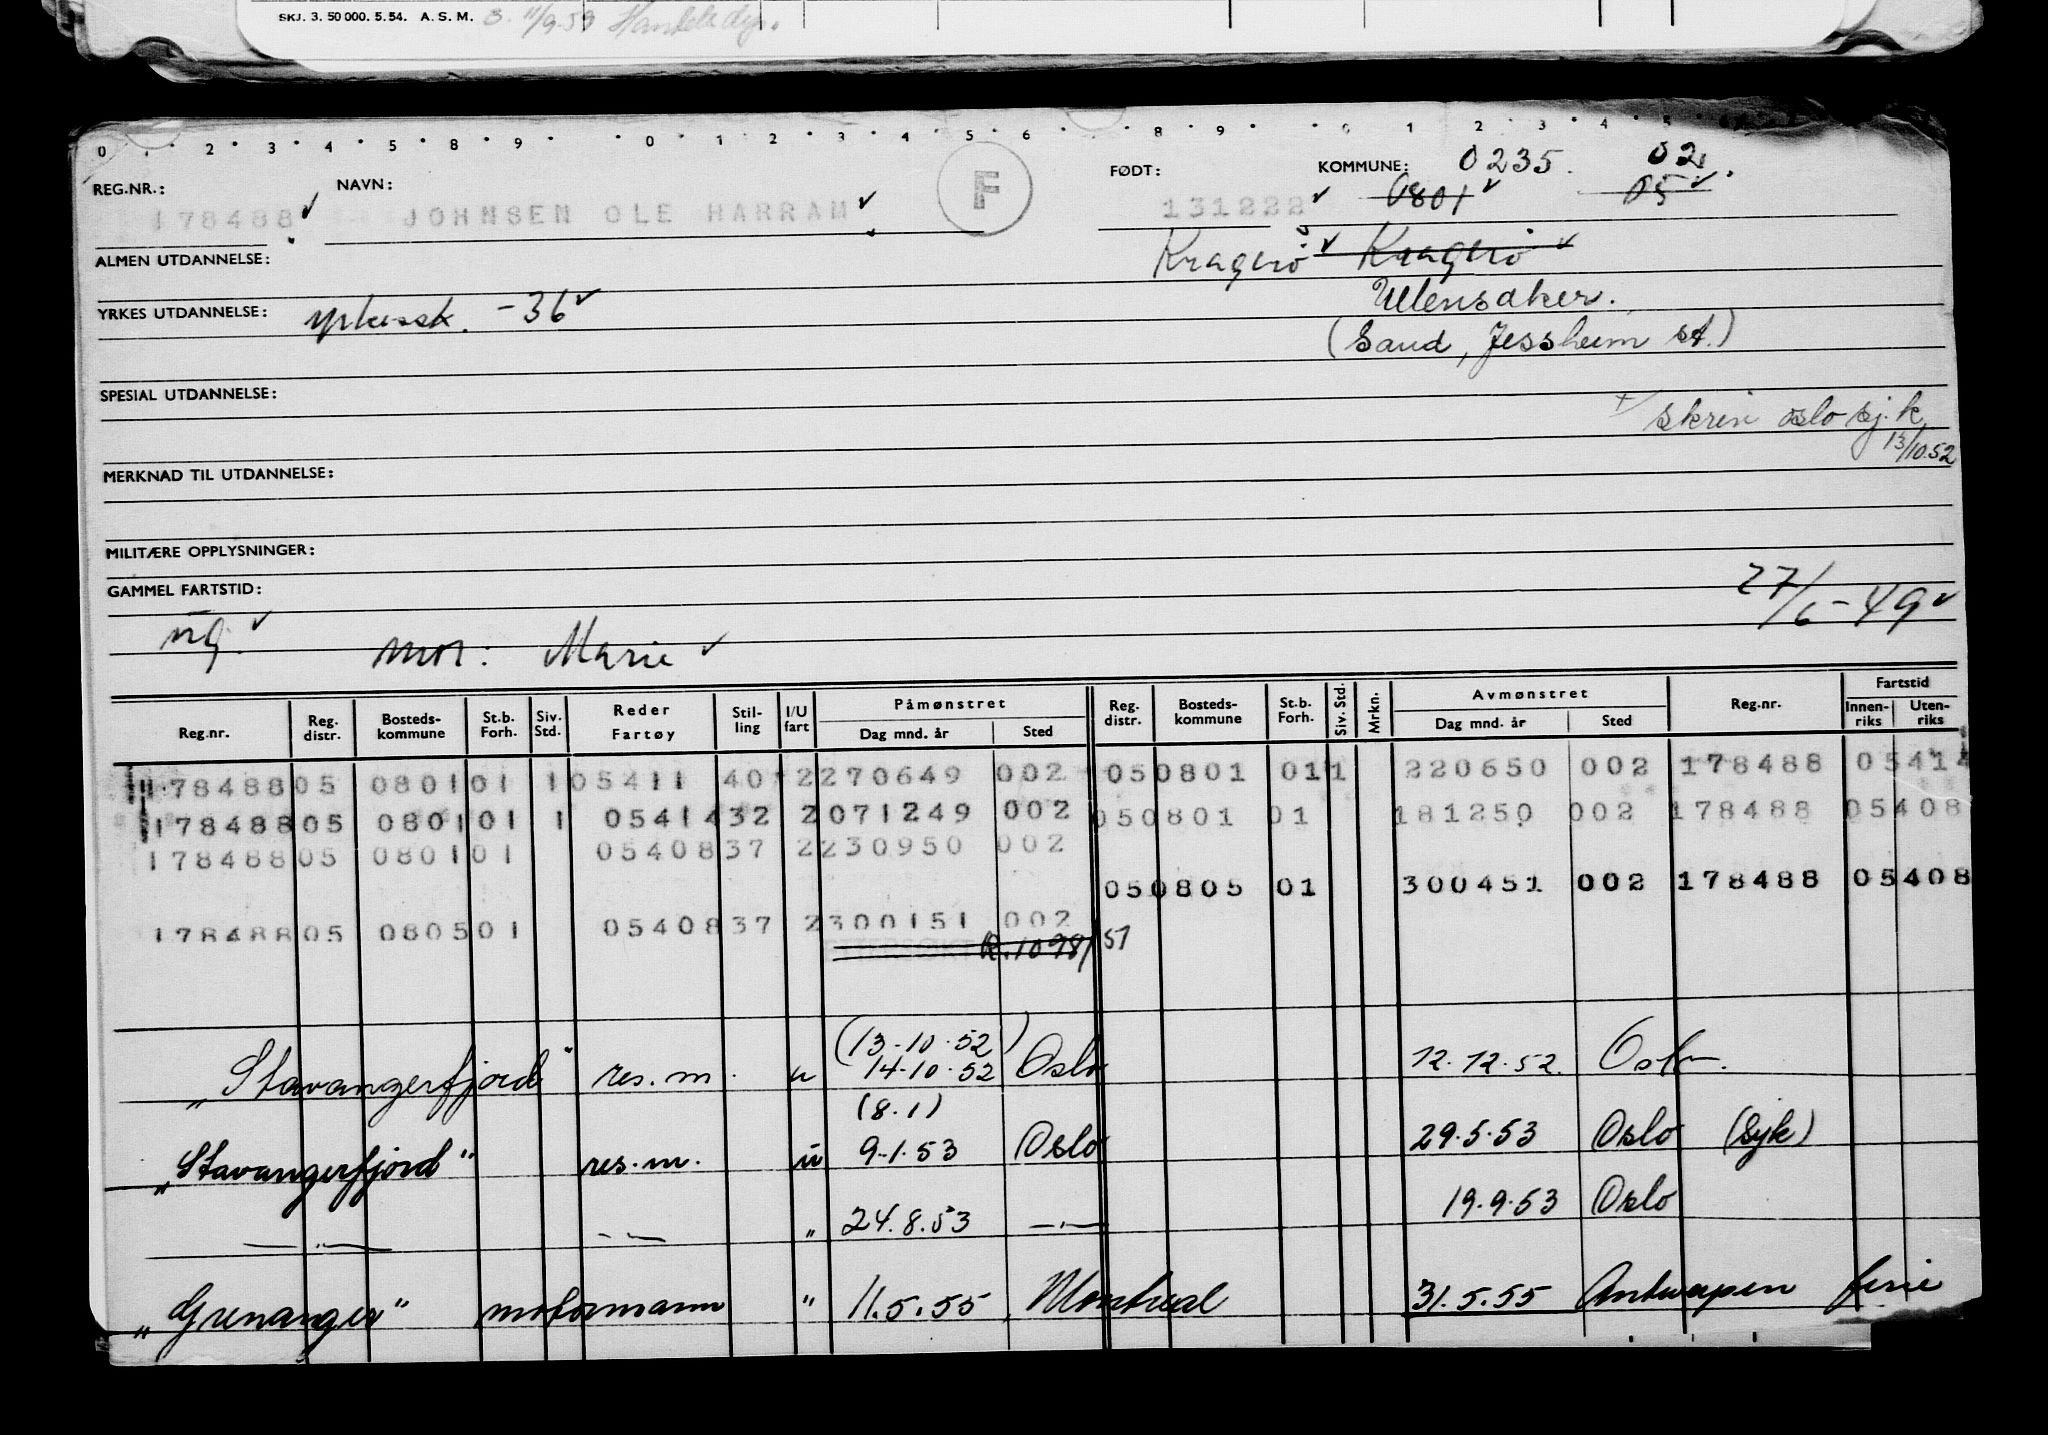 SKJ. 3. 50 000. 5. 54. A. S. M. 3. 11/9-59 Handelsdep.
0 2 3 4 5 8 9 0 1 2 3 4 5 6 8 9 0 1 2 3 4 5
REG.NR.: NAVN: F FØDT: KOMMUNE: 0235. 02.
178488 JOHNSEN OLE HARRAM 131222 0801 05
ALMEN UTDANNELSE: Kragerø Kragerø
YRKES UTDANNELSE: yrkessk. -36 Ullensaker.
(Sand, Jessheim st.)
SPESIAL UTDANNELSE:
skriv oslo sj.k
13/10.52
MERKNAD TIL UTDANNELSE:
MILITÆRE OPPLYSNINGER:
GAMMEL FARTSTID: 27/6-49
ug. mor: Marie
Reg.nr. Reg. distr. Bosteds-kommune St.b. Forh. Siv. Std. Reder Fartøy Stil-ling I/U fart Påmønstret Dag mnd. år Sted Reg. distr. Bosteds-kommune St.b. Forh. Siv. Std. Mrkn. Avmønstret Dag mnd. år Sted Reg.nr. Fartstid Innen-riks Uten-riks
178488 05 0801 01 1 05411 40 2 270649 002 05 0801 01 1 220650 002 178488 05414
178488 05 0801 01 1 05414 32 2 071249 002 05 0801 01 181250 002 178488 05408
178488 05 0801 01 05408 37 2 230950 002
05 0805 01 300451 002 178488 05408
178488 05 0805 01 05408 37 2 300151 002
R.1098/51
(13-10-52)
"Stavangerfjord" res.m. u 14-10-52 Oslo 12.12.52. Oslo.
(8.1)
"Stavangerfjord" res.m. u 9-1.53 Oslo 29.5.53 Oslo (Syk)
—"— —"— " 24.8.53 —"— 19.9.53 Oslo
"Grenanger" motormann " 11.5.55 Montreal 31.5.55 Antwerpen ferie